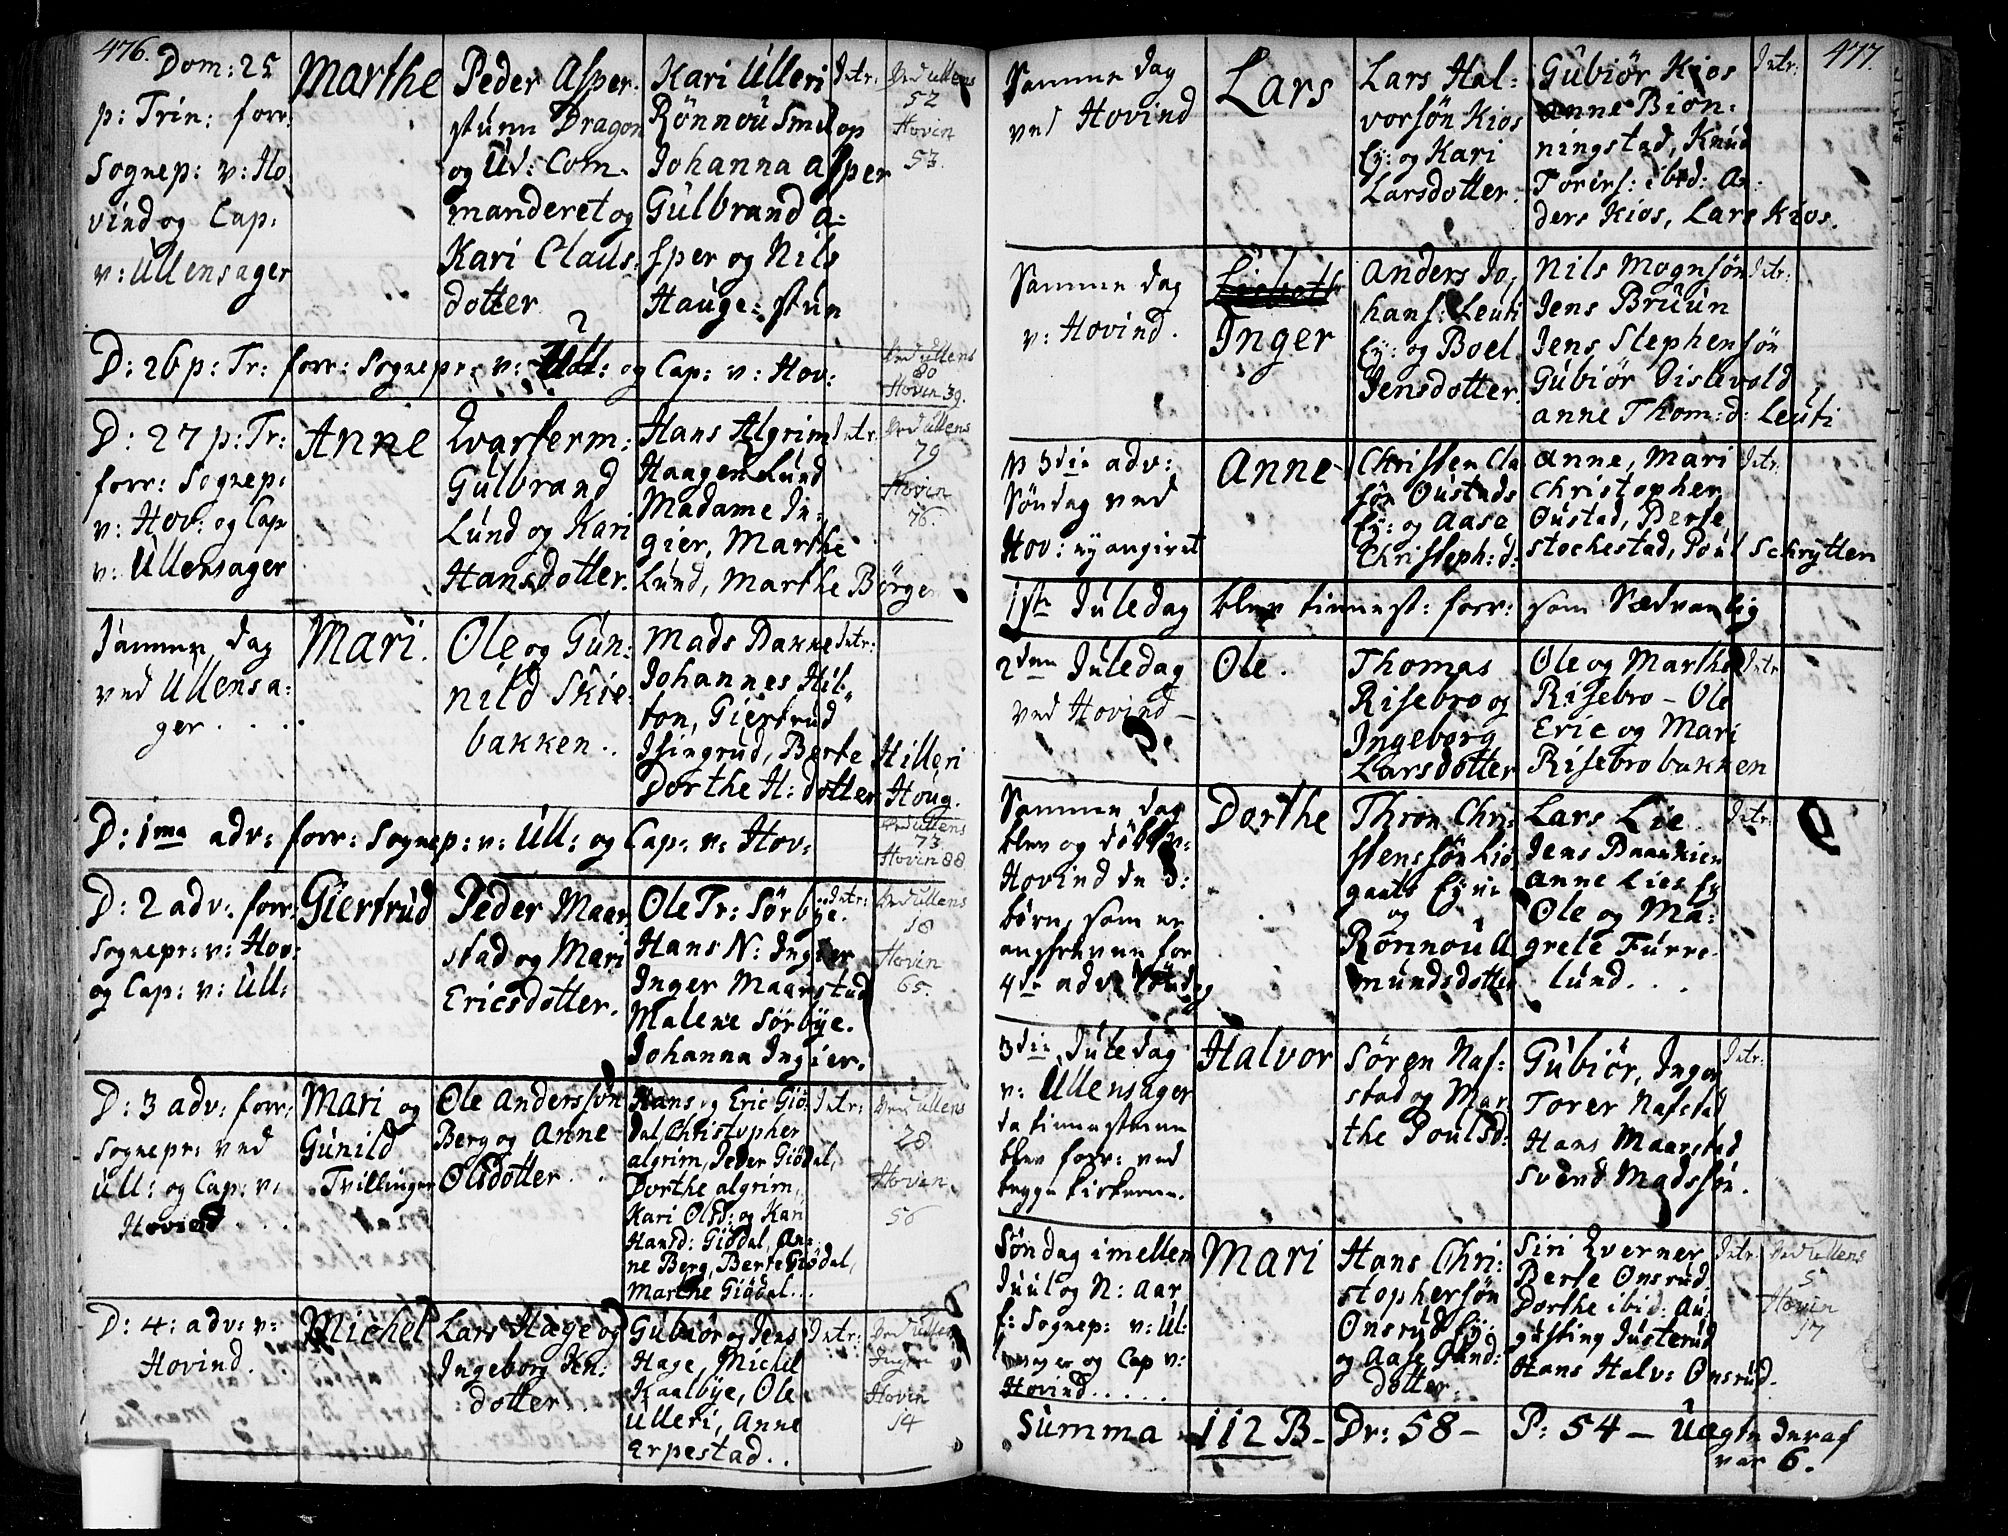 476.
Dom: 25
p: Trin: forr:
Sognep: v: Ho
vind og Cap:
v: Ullensager
Marthe
Peder Asper-
stunn Dragon
og Ud: Com-
manderet og
Kari Claus:
dotter
Kari Ulleri
Rönnou Smedop
Johanna asper
Gulbrand a-
sper og Nils
Hauge: stun
Intr:
Ved Ullens
52
Hovin
53.
D: 26 p: Tr: forr: Sognepr: v: Ull: og Cap: v: Hov:
Ved Ullens
80
Hovin 39.
D: 27 p: Tr:
forr: Sognep:
v: Hov: og Cap
v: Ullensager
Anne
Qvarterm:
Gulbrand
Lund og Kari
Hansdotter.
Hans Algrim
Haagen Lund
Madame In-
gier, Marthe
Lund, Marthe Börge
Intr:
Ved Ullens
79
Hovin
76.
Samme dag
ved Ullensa:
ger . . . .
Mari.
Ole og Gun:
nild Skie-
bakken..
Mads Bakke
Johannes Hil-
ton, Giertrud
Isingrud, Berte Hilleri
Dorthe H: dotter Houg.
Intr:
D: 1ma adv: forr: Sognep: v: Ull: og Cap: v: Hov:
Ved Ullens
73
Hovin 88
D: 2 adv: forr:
Sognepr: v: Hov:
og Cap: v: Ull:
Giertrud
Peder Maar
stad og Mari
Ericsdotter.
Ole Tr: Sörbye.
Hans N: Ingier
Inger Maarstad
Malene Sörbye.
Johanna Ingier.
Intr:
Ved Ullens
18
Hovin
65.
D: 3 adv: forr:
Sognepr: ved
Ull: og Cap: v:
Hovind . . .
Mari og
Gunild
Tvillinger
Ole Anderssön
Berg og Anne
Olsdotter . .
Hans og Eric Giö
dal, Christopher
algrim, Peder Giödal,
Dorthe algrim,
Kari Olsd: og Kari
Hansd: Giödal, An:
ne Berg, Berte Giödal,
Marthe Giödal...
Intr:
Ved Ullens
28
Hovin
56
D: 4: adv: v:
Hovind.
Michel
Lars Hage og
Ingeborg Jen:
dotter..
Gubiör og Jens
Hage, Michel
Kaalbye, Ole
Ulleri, Anne
Erpestad..
Intr:
Ved Ullens
Ingen
Hovin
14
477.
Samme dag
ved Hovind
Lars
Lars Hal-
vorsön Kios
Ey: og Kari
Larsdotter.
Gubiör Kios
Anne Biön-
ningstad, Knud
Torers: ibid: An:
ders Kios, Lars Kios.
Intr:
Samme dag
v: Hovind.
Inger
Anders Jo,
hans: Leuti
Ey: og Boel
Jensdotter.
Nils Mognsön
Jens Bruun
Jens Stephensön
Gubiör Dislevold
anne Thom: d: Leuti
Intr:
P 3die adv:
Söndag ved
Hov: ey angivet
Anne
Christen Cla
sön Oustads
Ey: og Aase
Christeph: d:
Anne, Mari
Christopher
Oustad, Berte
Stochestad, Poul Schrytten
Intr.
1ste Juledag blev tiennest: forr: som Sædvanlig
2den Juledag
ved Hovind -
Ole.
Thomas
Risebro og
Ingeborg
Larsdotter
Ole og Marthe
Risebro - Ole
Eric og Mari
Risebrobakken
Intr
Samme dag
blev og döbt v:
Hovind de 3:
börn, som er
anskreven for
4de adv: Söndag
Dorthe
Thron Chri-
stenssön Lie
gaals Eyni
og
Rönnou A
mundsdotter
Lars Lie
Jens Bakkien
Anne Lies Ey
Ole og Ma:
grete Furre-
lund. . .
Intr:
3die Juledag
v: Ullensager
da tiennesten
blev forr: ved
begge kirkerne.
Halvor
Sören Naf-
stad og Mar
the Poulsd:
Gubiör, Inger
Torer Nafstad
Hans Maarstad
Svend Madssön.
Intr:
Söndag imellem
Juul og N: Aar
f: Sognep: v: Ul:
ensager og Cap v:
Hovind.....
Mari
Hans Chri-
stophersön
Onsrud Ey:
og Aase Gund:
dotter.
Siri Qverner
Berte Onsrud
Dorthe ibid: Au,
gusting Justerud
Hans Halv: Onsrud.
Intr
Ved Ullens
5
Hovin
17
Summa 112 B- Dr: 58 - P: 54 - Uægte deraf
var 6.